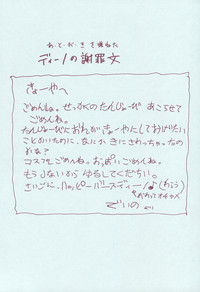 あとがきを兼ねた
ディーノの謝罪文
きょーやへ
ごめんね。せっかくのたんじょーび おこらせて
ごめんね。
たんじょーびにおれがきょーやにしてあげたい
こといったために、なにか きにさわっちゃったの
かな?
コスプもごめんね。おっぱいごめんね。
もうしないから ゆるしてください。
さいごに、ハッピーバースディー♪(わらう)
でぃの より